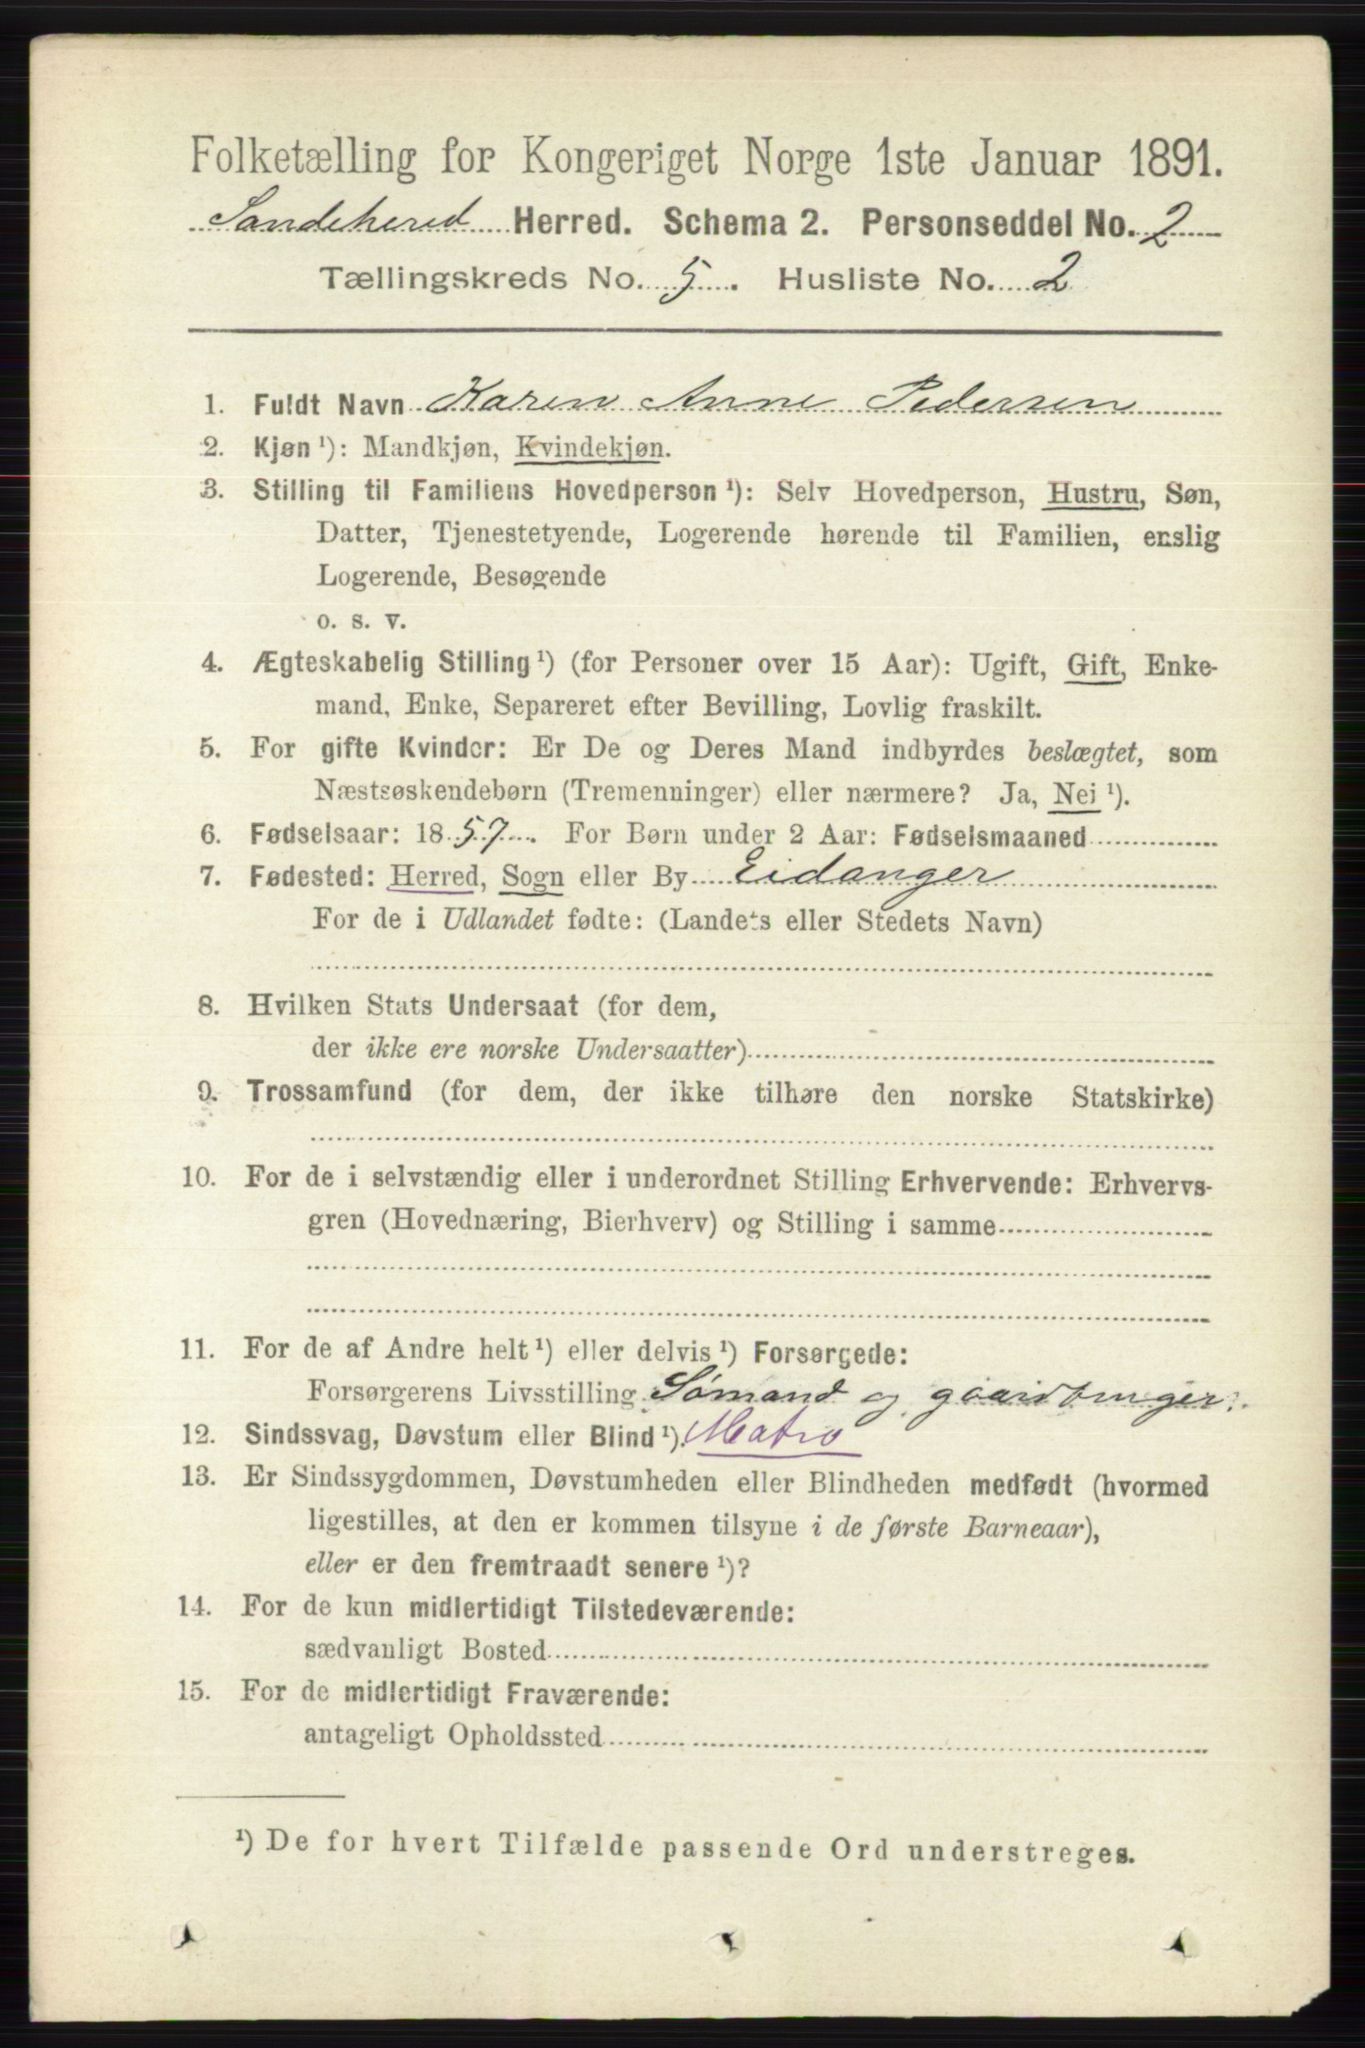 Folketælling for Kongeriget Norge 1ste Januar 1891.
Sandehered Herred. Schema 2. Personseddel No. 2
Tællingskreds No. 5. Husliste No. 2
1. Fuldt Navn Karen Anne Pedersen
2. Kjøn ¹): Mandkjøn, Kvindekjøn.
3. Stilling til Familiens Hovedperson ¹): Selv Hovedperson, Hustru, Søn,
Datter, Tjenestetyende, Logerende hørende til Familien, enslig
Logerende, Besøgende
o. s. v.
4. Ægteskabelig Stilling ¹) (for Personer over 15 Aar): Ugift, Gift, Enke-
mand, Enke, Separeret efter Bevilling, Lovlig fraskilt.
5. For gifte Kvinder: Er De og Deres Mand indbyrdes beslægtet, som
Næstsøskendebørn (Tremenninger) eller nærmere? Ja, Nei ¹).
6. Fødselsaar: 1857. For Børn under 2 Aar: Fødselsmaaned
7. Fødested: Herred, Sogn eller By Eidanger
For de i Udlandet fødte: (Landets eller Stedets Navn)
8. Hvilken Stats Undersaat (for dem,
der ikke ere norske Undersaatter)
9. Trossamfund (for dem, der ikke tilhøre den norske Statskirke)
10. For de i selvstændig eller i underordnet Stilling Erhvervende: Erhvervs-
gren (Hovednæring, Bierhverv) og Stilling i samme
11. For de af Andre helt ¹) eller delvis ¹) Forsørgede:
Forsørgerens Livsstilling Sömand og gaardbruger.
12. Sindssvag, Døvstum eller Blind ¹). Matro
13. Er Sindssygdommen, Døvstumheden eller Blindheden medfødt (hvormed
ligestilles, at den er kommen tilsyne i de første Barneaar),
eller er den fremtraadt senere ¹)?
14. For de kun midlertidigt Tilstedeværende:
sædvanligt Bosted
15. For de midlertidigt Fraværende:
antageligt Opholdssted
¹) De for hvert Tilfælde passende Ord understreges.